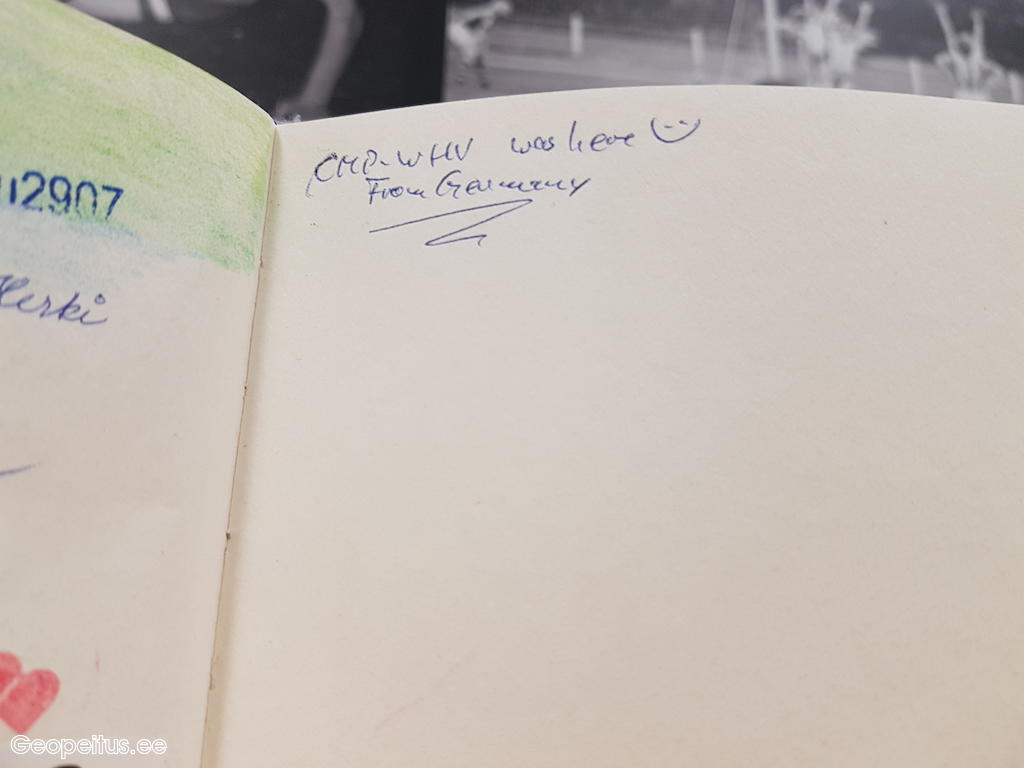 2907
Herki
CMP-WHV was here
From Germany
Geopeitus.ee